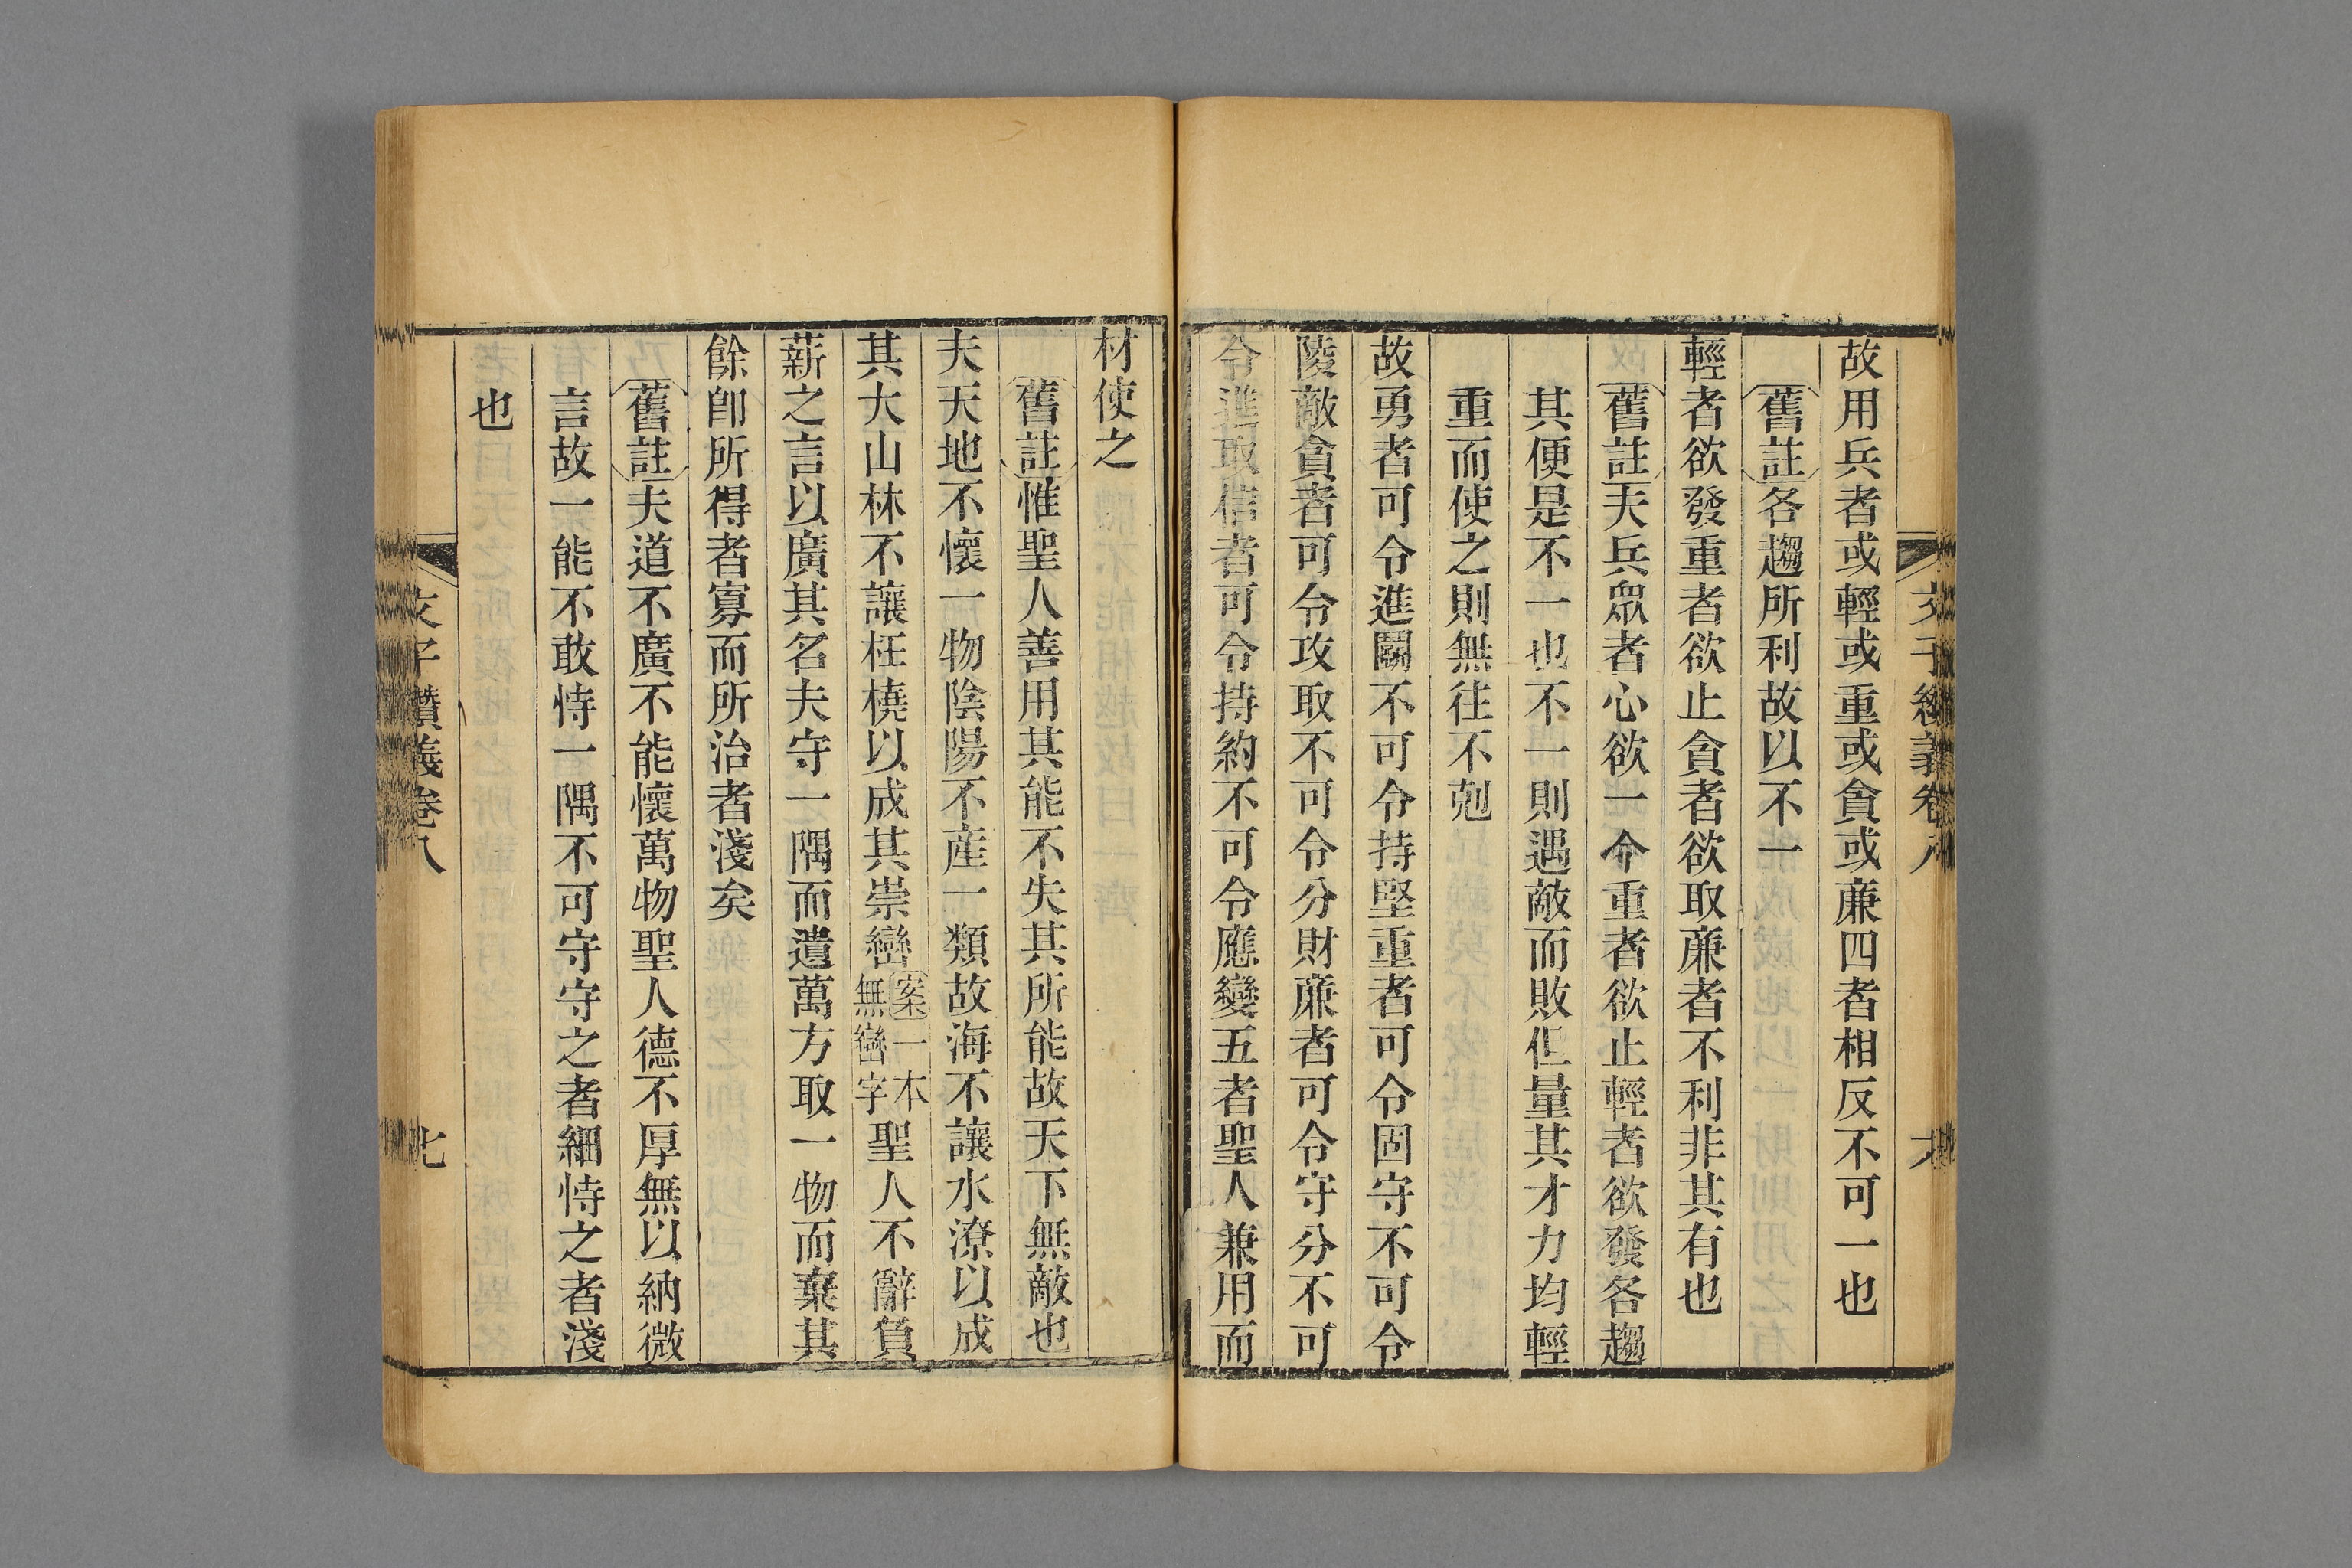 故用兵者或輕或重或貪或廉四者相反不可一也
舊註各趨所利故以不一
輕者欲發重者欲止貪者欲取廉者不利非其有也
舊註夫兵眾者心欲一今重者欲止輕者欲發各趨
其便是不一也不一則遇敵而敗但量其才力均輕
重而使之則無往不剋
故勇者可令進鬬不可令持堅重者可令固守不可令
陵敵貪者可令攻取不可令分財廉者可令守分不可
令進取信者可令持約不可令應變五者聖人兼用而
材使之
舊註惟聖人善用其能不失其所能故天下無敵也
夫天地不懷一物陰陽不産一類故海不讓水潦以成
其大山林不讓枉橈以成其崇巒案一本無巒字聖人不辭負
薪之言以廣其名夫守一隅而遺萬方取一物而棄其
餘卽所得者寡而所治者淺矣
舊註夫道不廣不能懷萬物聖人德不厚無以納微
言故一能不敢恃一隅不可守守之者細恃之者淺
也
文子纘義卷八